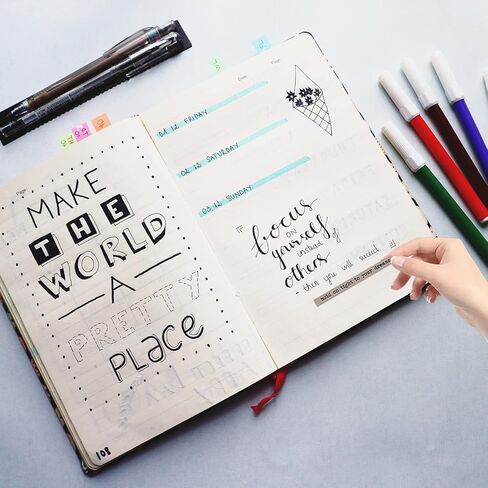 Page:
MAKE
THE
WORLD
A
PRETTY
PLACE
108
Date:
Page:
01.12 FRIDAY
02.12 SATURDAY
03.12 SUNDAY
focus
ON
yourself
instead of
others
- then you will succeed
hold on tight to your dreams